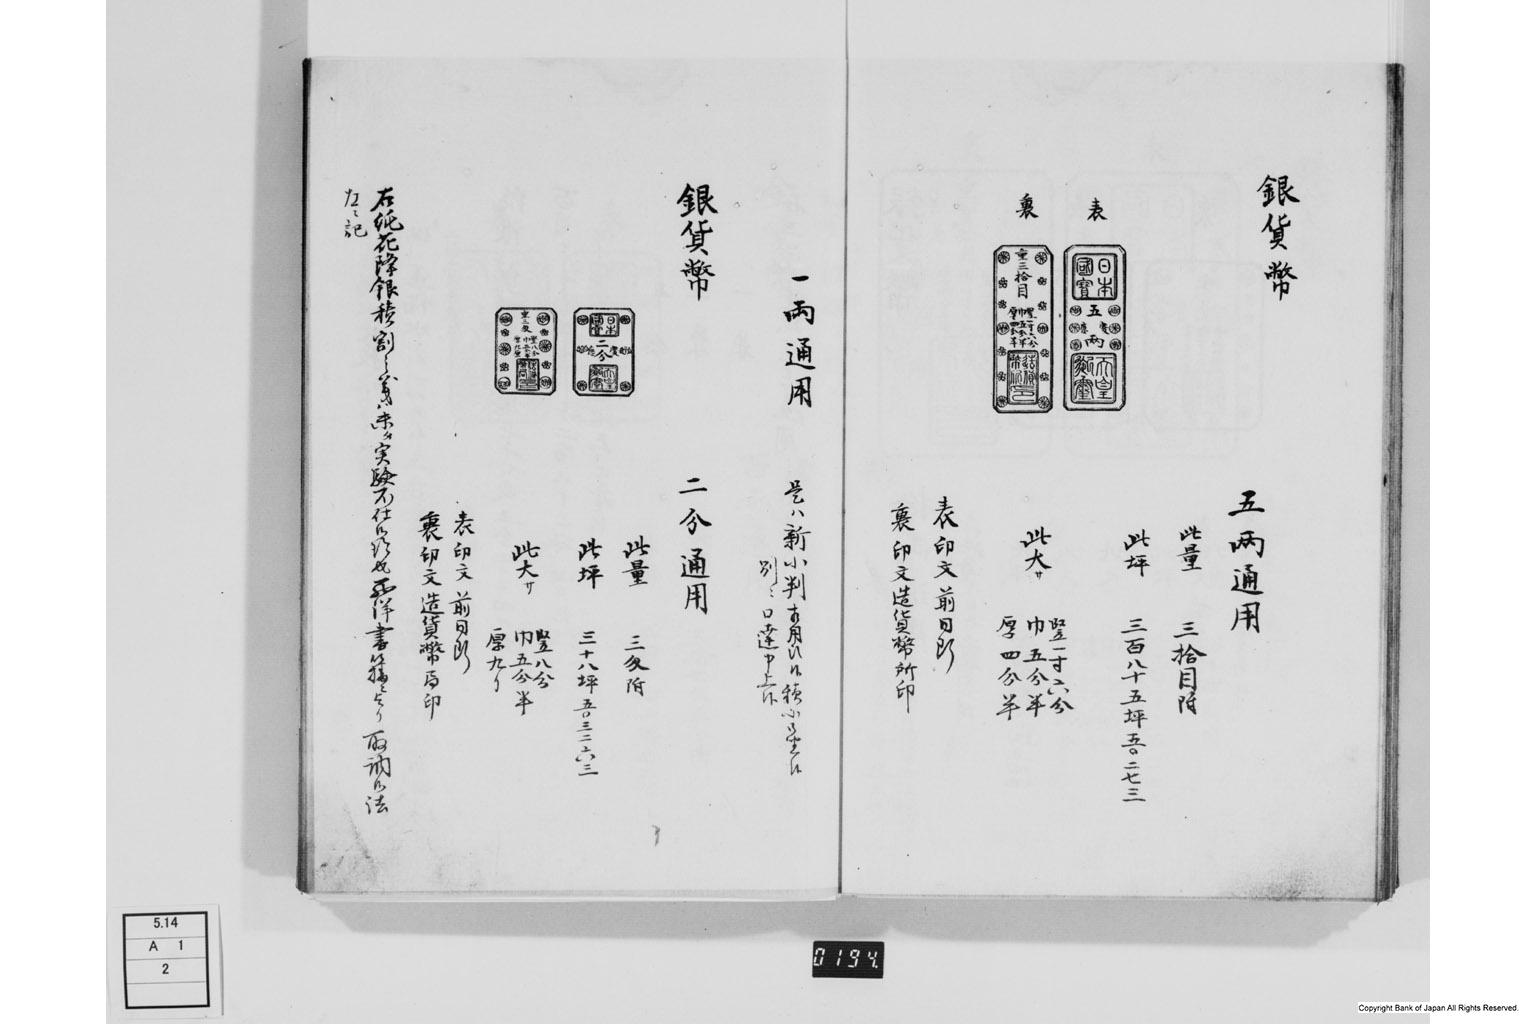 銀貨幣
五両通用
此量 三拾目附
此坪 三百八十五坪五〇二七三
竪一寸六分
此大サ 巾五分半
厚四分半
表
日本國寳
五両
裏
重三拾目
竪一寸六分
巾五分半
厚四分半
表印文前同断
裏印文造貨幣所印
一両通用
是ハ新小判
別ニ口達申上候
銀貨幣
二分通用
此量 三匁附
此坪 三十八坪五〇三二六三
竪八分
此大サ 巾五分半
厚九リ
日本國寳
二分
重三匁
竪八分
表印文前同断
裏印文造貨幣局印
右純花降銀積割之義ハ未タ実験不仕候 西洋書籍ゟ 取調候法
左ニ記
5.14
A 1
2
0194.
Copyright Bank of Japan All Rights Reserved.